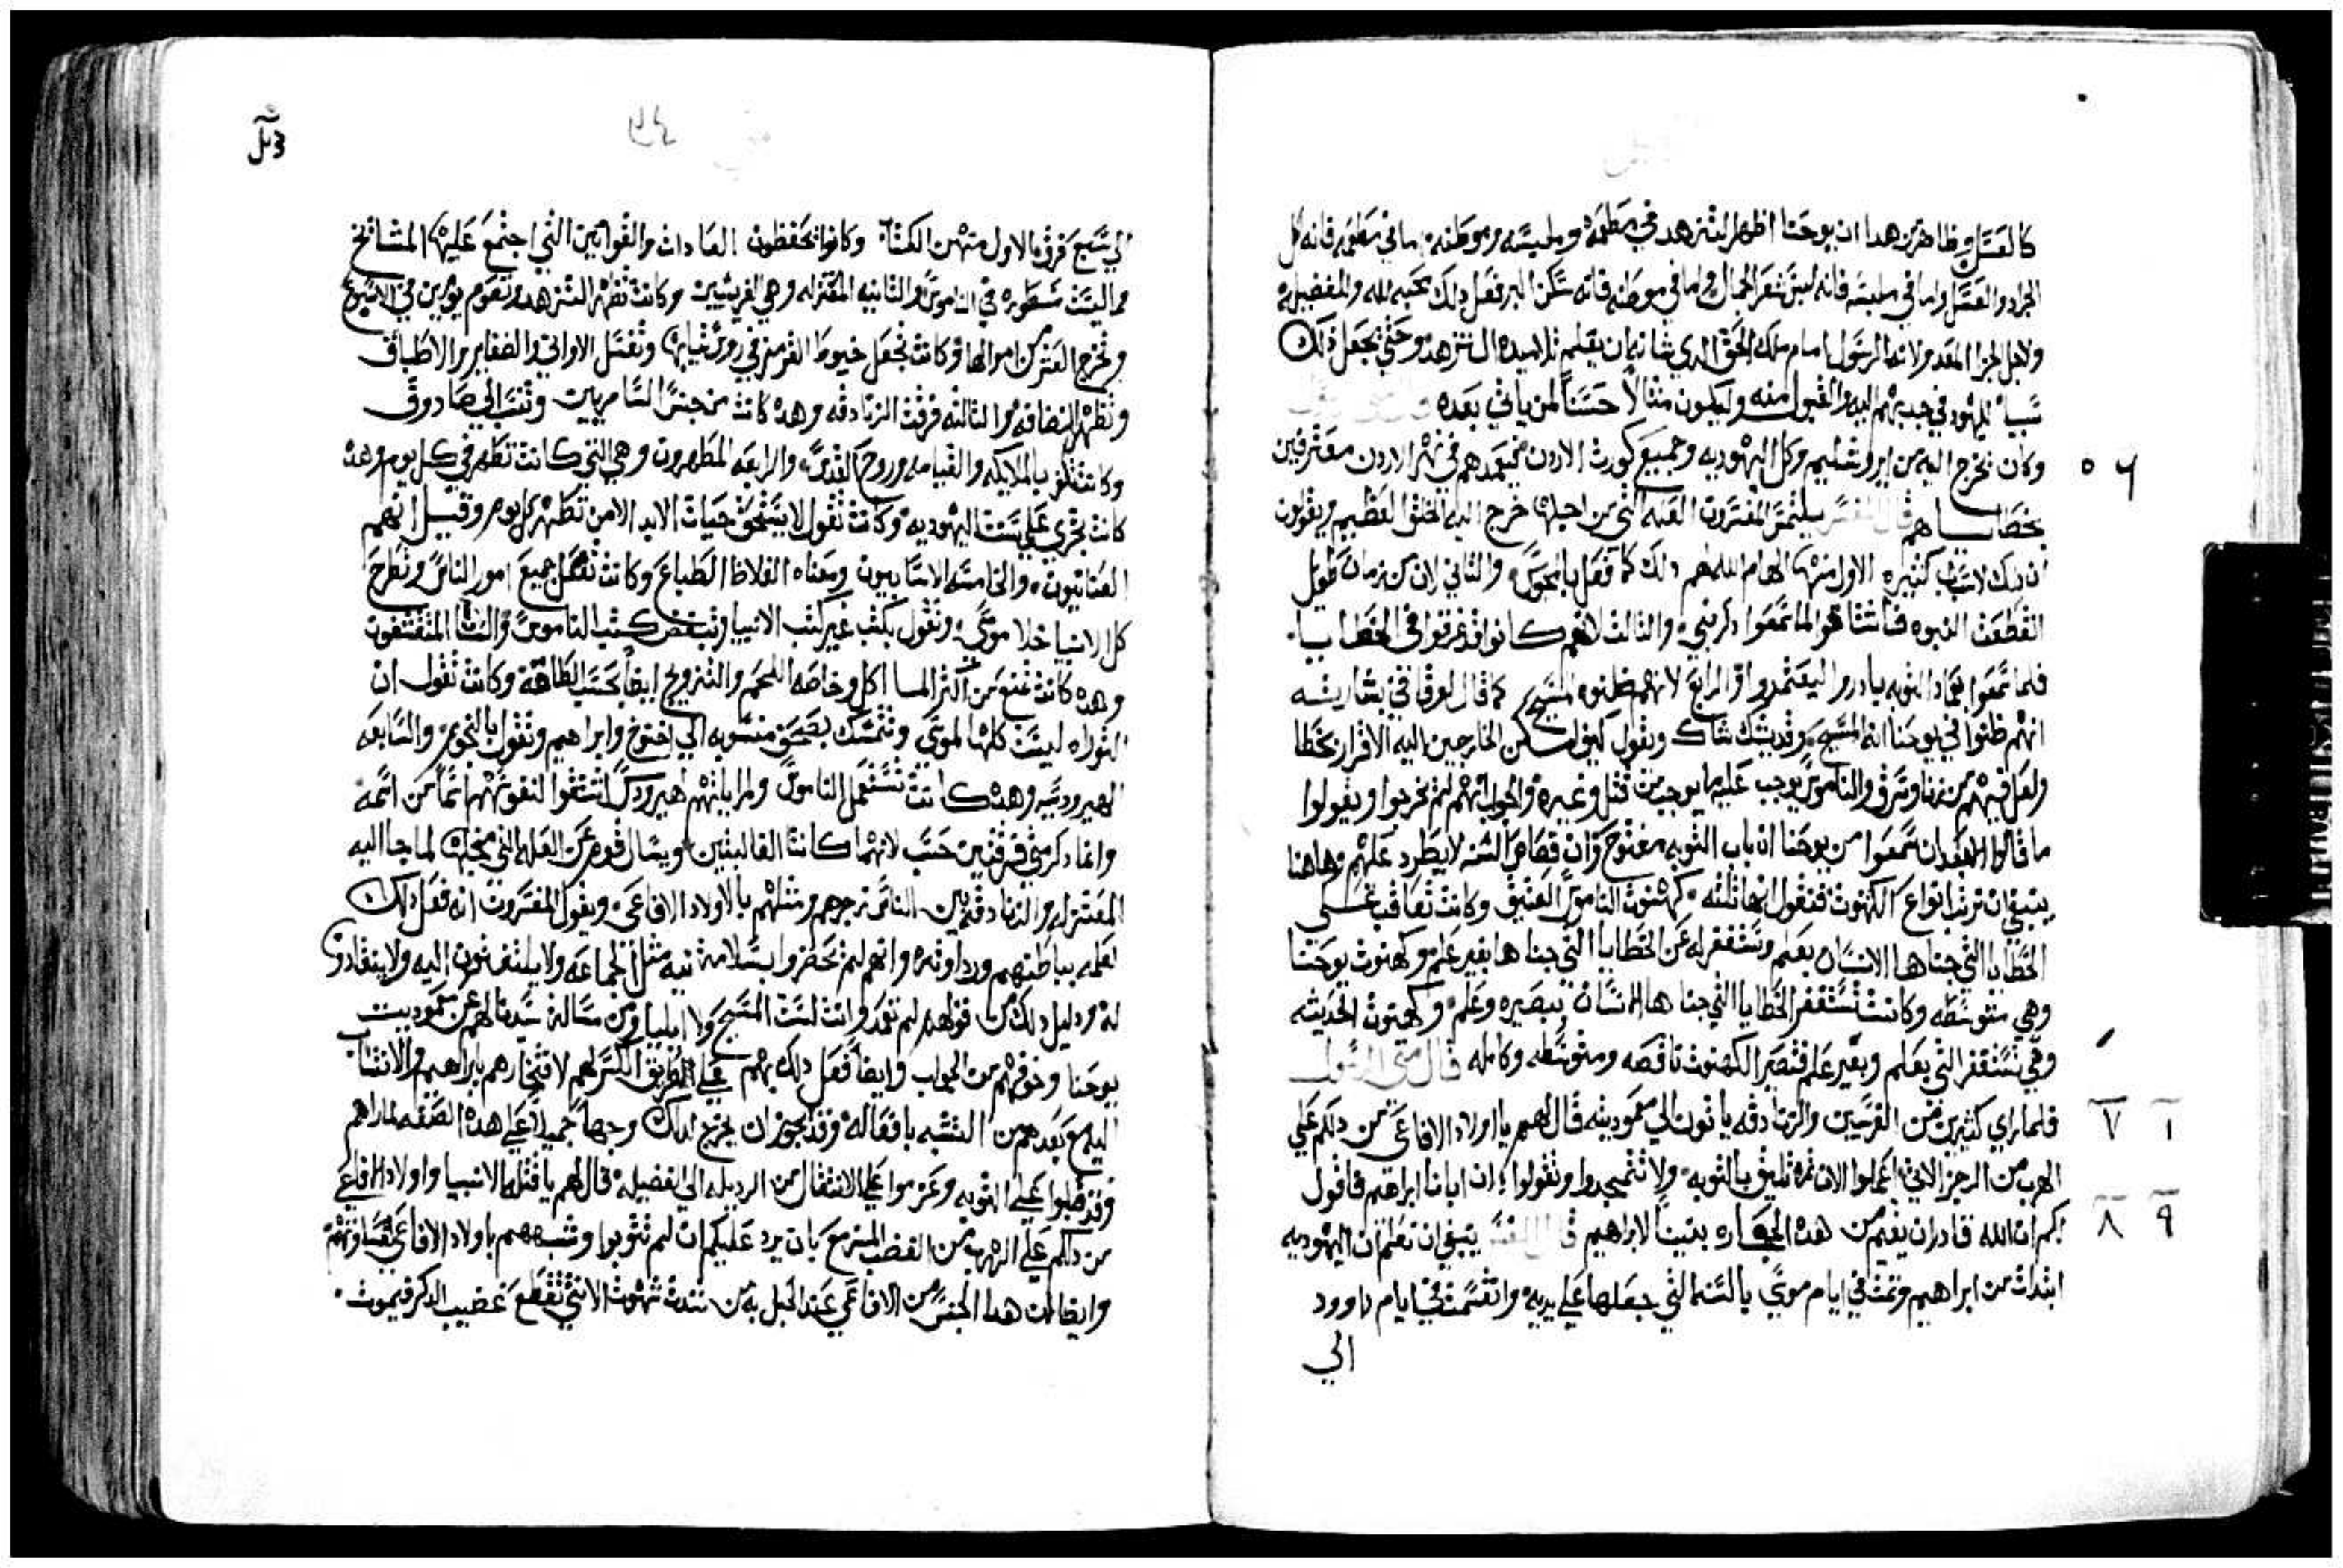 كالعسل وظاهر من هدا ان يوحنا اظهر التزهد في مطعمه وملبسه وموطنه اما في مطعمه فانه اكل
الجراد والعسل واما في ملبسه فانه لبس شعر الجمال واما في موطنه فانه سكن البر فعل دلك محبه لله والفضيله
ولاجل الجزا المعد ولانه الرسول امام ملك الحق الدي شانه ان يعلم تلاميده التزهد وحتي يجعل دلك
سببا لليهود في جدبهم اليه والقبول منه وليكون مثالاً حسناً لمن ياتي بعده
٥ وكان يخرج اليه من ايروشليم وكل اليهوديه وجميع كورت الاردن فيعمدهم في نهر الاردن معترفين
بخطاياهم قال المفسر يلتمس المفسرون العله التي من اجلها خرج اليه الخلق العظيم ويقولون
ان دلك لاسباب كثيره الاول منها الهام الله لهم دلك كما فعل بالمجوس والثاني لان من زمان طويل
انقطعت النبوه فاشتاقوا لما سمعوا دكر نبي والثالث لانهم كانوا قد غرقوا في الخطايا
فلما سمعوا بعماد التوبه بادروا ليعتمدوا والرابع لانهم ظنوه المسيح كما قال لوقا في بشارته
انهم ظنوا في يوحنا انه المسيح وقد يشك شاك ويقول كيف امكن الخارجين اليه الاقرار بخطاياهم
ولعل فيهم من زنا وسرق والناموس يوجب عليه ما يوجب من قتل وغيره والجواب انهم لم يخرجوا ويقولوا
ما قالوا الا بعد ان سمعوا من يوحنا ان باب التوبه مفتوح وان قصاص السنه لا يطرد عليهم وهاهنا
ينبغي ان نرتب انواع الكهنوت فنقول انها ثلثه كهنوت الناموس العتيق وكانت تعاقب علي
الخطايا التي جناها الانسان بعلم وتستغفر له عن الخطايا التي جناها بغير علم وكهنوت يوحنا
وهي متوسطه وكانت تستغفر الخطايا التي جناها الانسان ببصيره وعلم وكهنوت الحديثه
وهي تستغفر التي بعلم وبغير علم فتصير الكهنوت ناقصه ومتوسطه وكامله قال متي الرسول
٧ ١ فلما راي كثيرين من الفريسيين والزنادقه ياتون الي معموديته قال لهم يا اولاد الافاعي من دلكم علي
الهرب من الرجز الاتي اعملوا الان ثمره تليق بالتوبه ولا تتمجدوا وتقولوا ان ابانا ابراهيم فاقول
٨ ٩ لكم ان الله قادر ان يقيم من هده الحجاره بنينا لابراهيم قال المفسر ينبغي ان تعلم ان اليهوديه
ابتدات من ابراهيم وتمت في ايام موسي بالسنه التي جعلها علي يديه وانقسمت في ايام داوود
الي
الي سبع فرق الاول منهن الكتاب وكانوا يحفظون العادات والقوانين التي اجتمع عليها المشائخ
مما ليست مسطوره في الناموس والثانيه المعتزله وهي الفريسيين وكانت تظهر التزهد وتصوم يومين في الاسبوع
وتخرج العشر من اموالها وكانت تجعل خيوط القرمز في روس ثيابها وتغسل الاواني والصفاير والاطباق
وتظهر النضافه والثالثه فرقت الزنادقه وهده كانت من جنس السامريين وتنسب الي صادوق
وكانت تكفر بالملايكه والقيامه وروح القدس والرابعه المطهرون وهي التي كانت تطهر في كل يوم وهده
كانت تجري علي سنت اليهوديه وكانت تقول لا يستحق حيات الابد الا من تطهر كل يوم وقيل انهم
العنانيون والخامسه الاسابيون ومعناه الغلاظ الطباع وكانت تعمل جميع امور الناموس وتطرح
كل الانبيا خلا موسي وتقول بكتب غير كتب الانبيا وتبغض كتب الناموس والسادسه المتقشفون
وهده كانت تمنع من اكثر الماكل وخاصه اللحم والتزويج ايضاً بحسب الطاقه وكانت تقول ان
التوراه ليست كلها لموسي وتتمسك بصحف منسوبه الي اخنوخ وابراهيم وتقول بالنجوم والسابعه
الهيروديسيه وهده كانت تستعمل الناموس ولمرايلتهم هيرودس اشتقوا لنفوسهم اسماً من اسمه
وانما دكر متي فرقتين حسب لانهما كانتا الغالبتين ويسال قوم عن العله التي من اجلها لما جا اليه
المعتزله والزنادقه من بين الناس زجرهم ومثلهم بالاولاد الافاعي ويقول المفسرون انه فعل دلك
لعلمه بباطنهم ورداوته وانهم لم يحضروا بسلامة نيه مثل الجماعه ولا يلتفتون اليه ولا ينقادون
له ودليل دلك من قولهم لم تعمد وانت لست المسيح ولا ايليا ومن مسالة سيدنا لهم عن معموديت
يوحنا وخوفهم من الجواب وايضاً فعل دلك بهم علي طريق الكسر لهم لافتخارهم بابراهيم والانتساب
اليه مع بعدهم من التشبه بافعاله وقد يجوز ان يخرج لدلك وجهاً جميلاً علي هده الصفه لما راهم
وقد اقبلوا علي التوبه وعزموا علي الانتقال من الرديله الي الفضيله قال لهم يا قتلة الانبيا واولاد الافاعي
من دلكم علي الهرب من الغضب المزمع بان يرد عليكم ان لم تتوبوا وشبههم باولاد الافاعي
وايضا لان هدا الجنس من الافاعي عند الحبل به من شدت شهوت الانثي تقطع غضيب الدكر فيموت